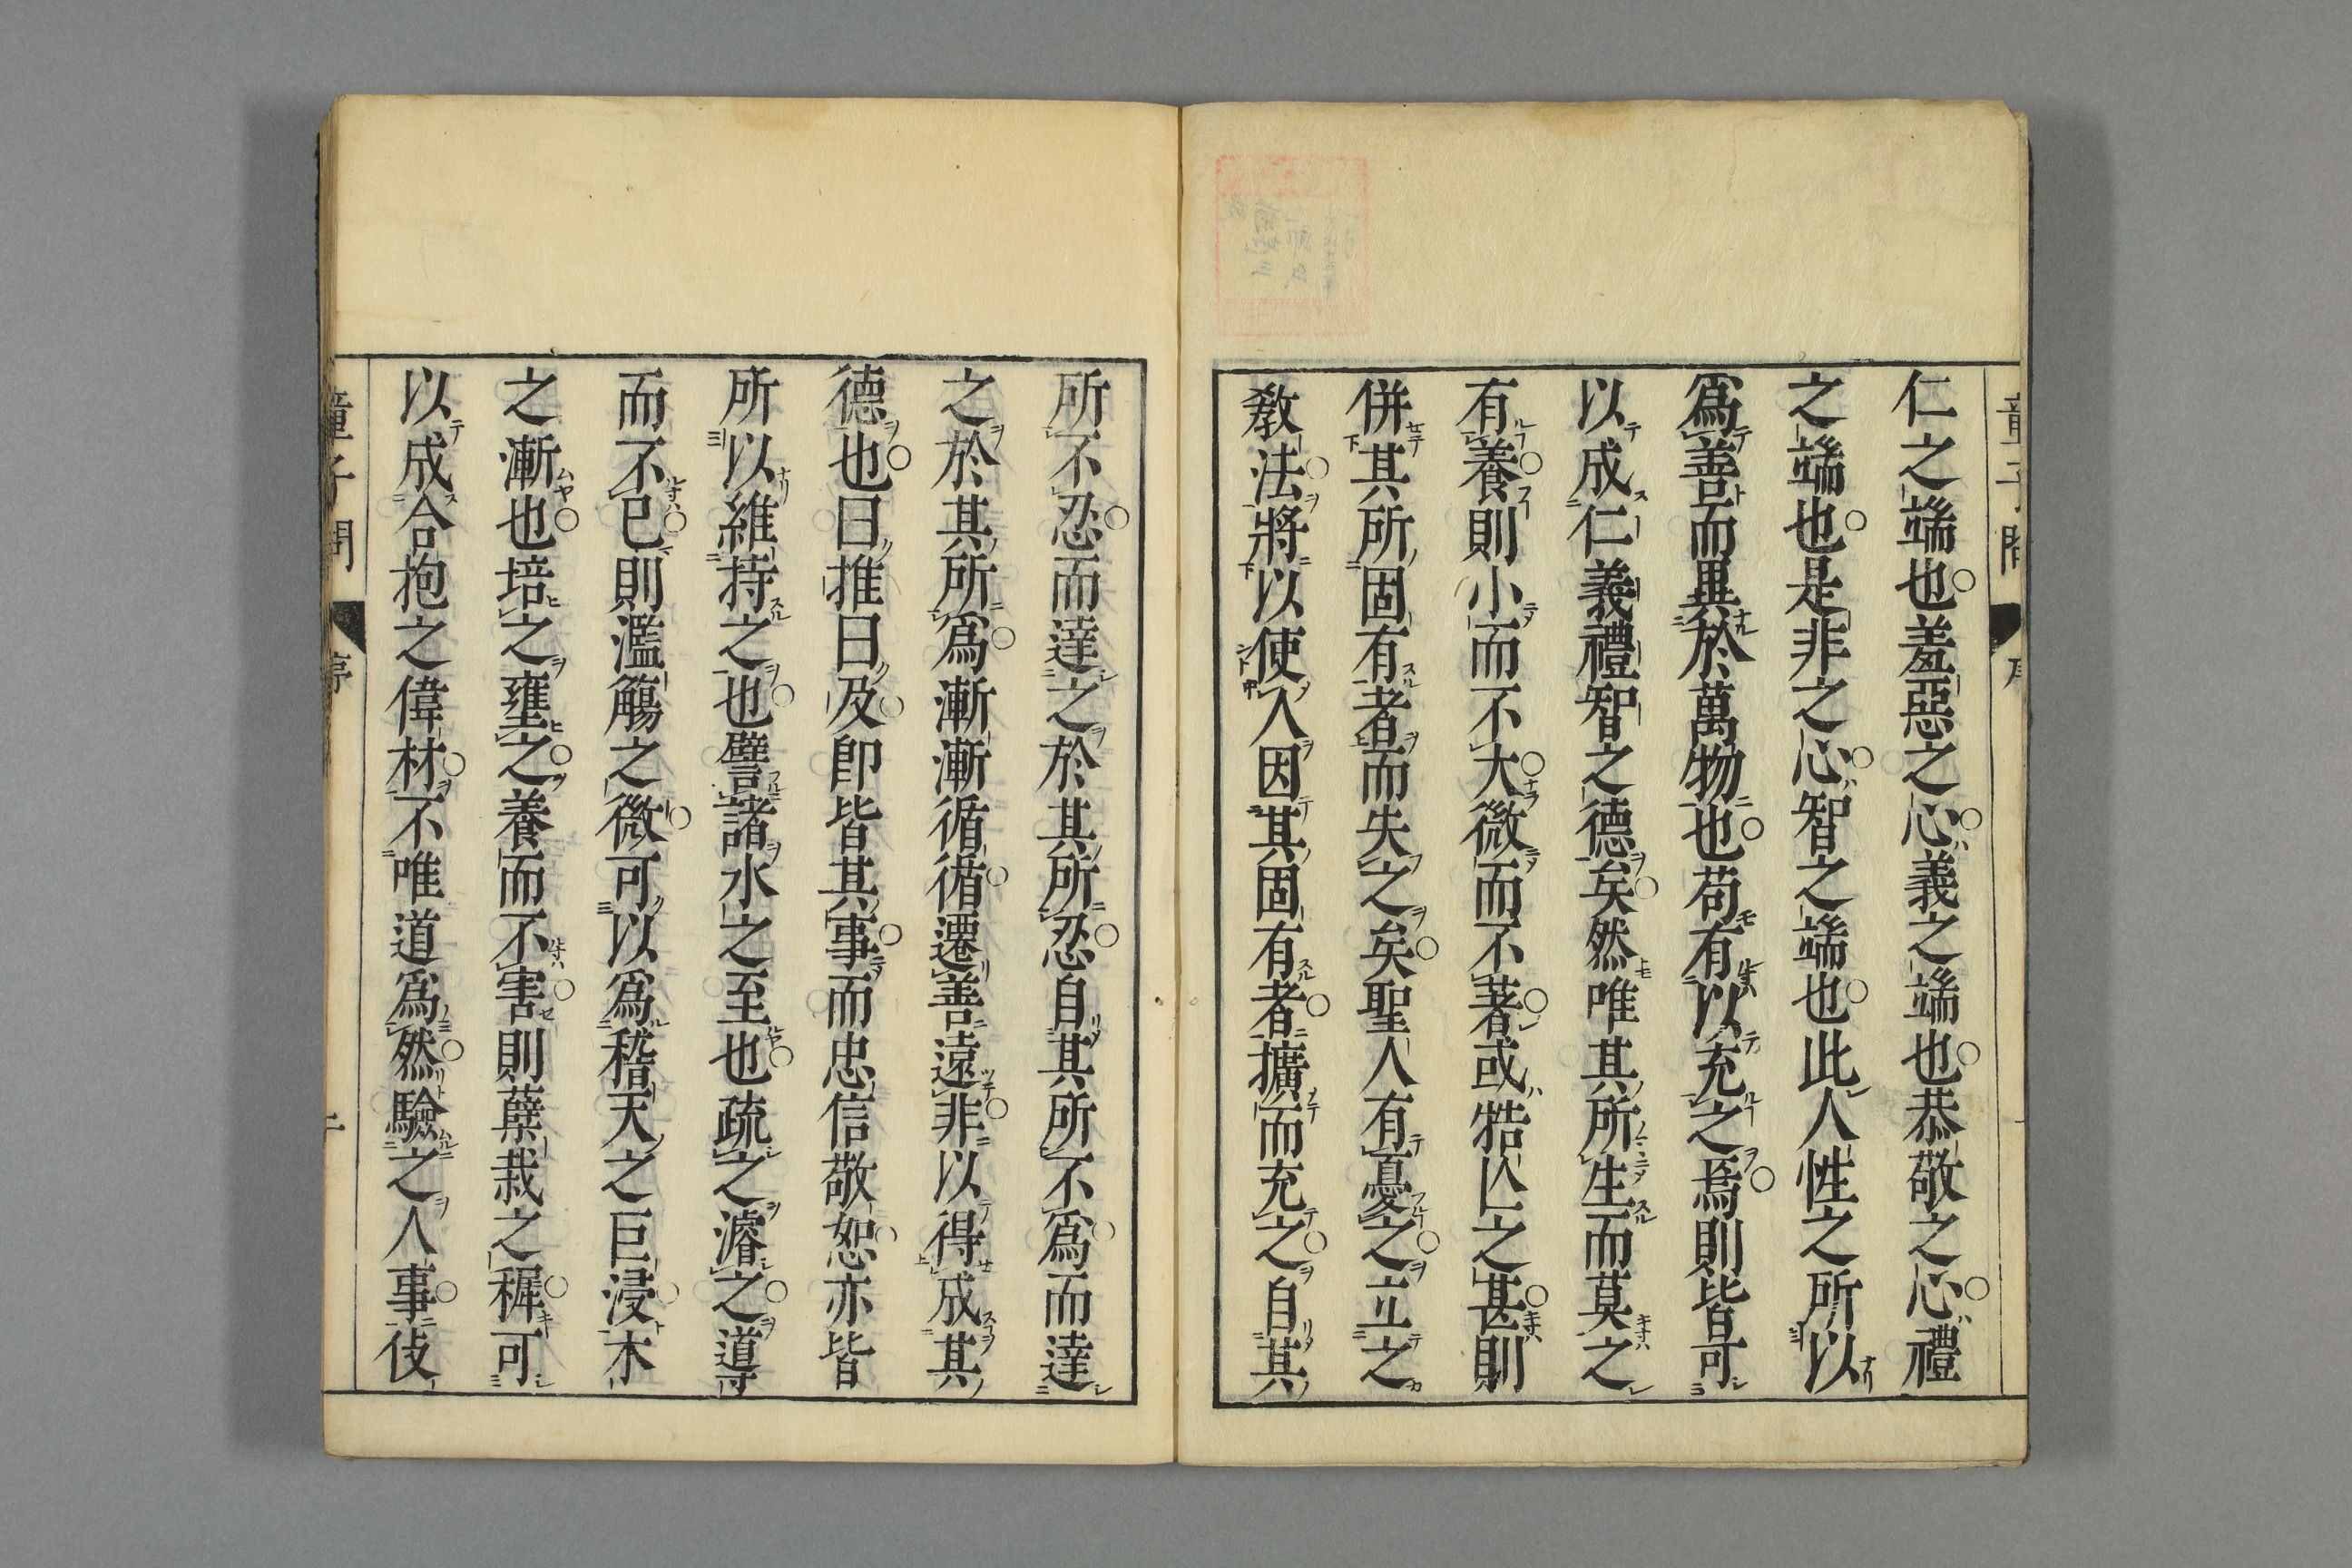 仁之端也羞惡之心義之端也恭敬之心禮
之端也是非之心智之端也此人性之所以
爲善而異於萬物也苟有以充之焉則皆可
以成仁義禮智之德矣然唯其所生而莫之
有養則小而不大微而不著或牿亾之甚則
併其所固有者而失之矣聖人有憂之立之
教法將以使人因其固有者擴而充之自其
所不忍而達之於其所忍自其所不爲而達
之於其所爲漸漸循循遷善遠非以得成其
德也曰推曰及卽皆其事而忠信敬恕亦皆
所以維持之也譬諸水之至也疏之濬之導
而不已則濫觴之微可以爲稽天之巨浸木
之漸也培之壅之養而不害則蘖栽之穉可
以成合抱之偉材不唯道爲然驗之人事伎
童子問 序